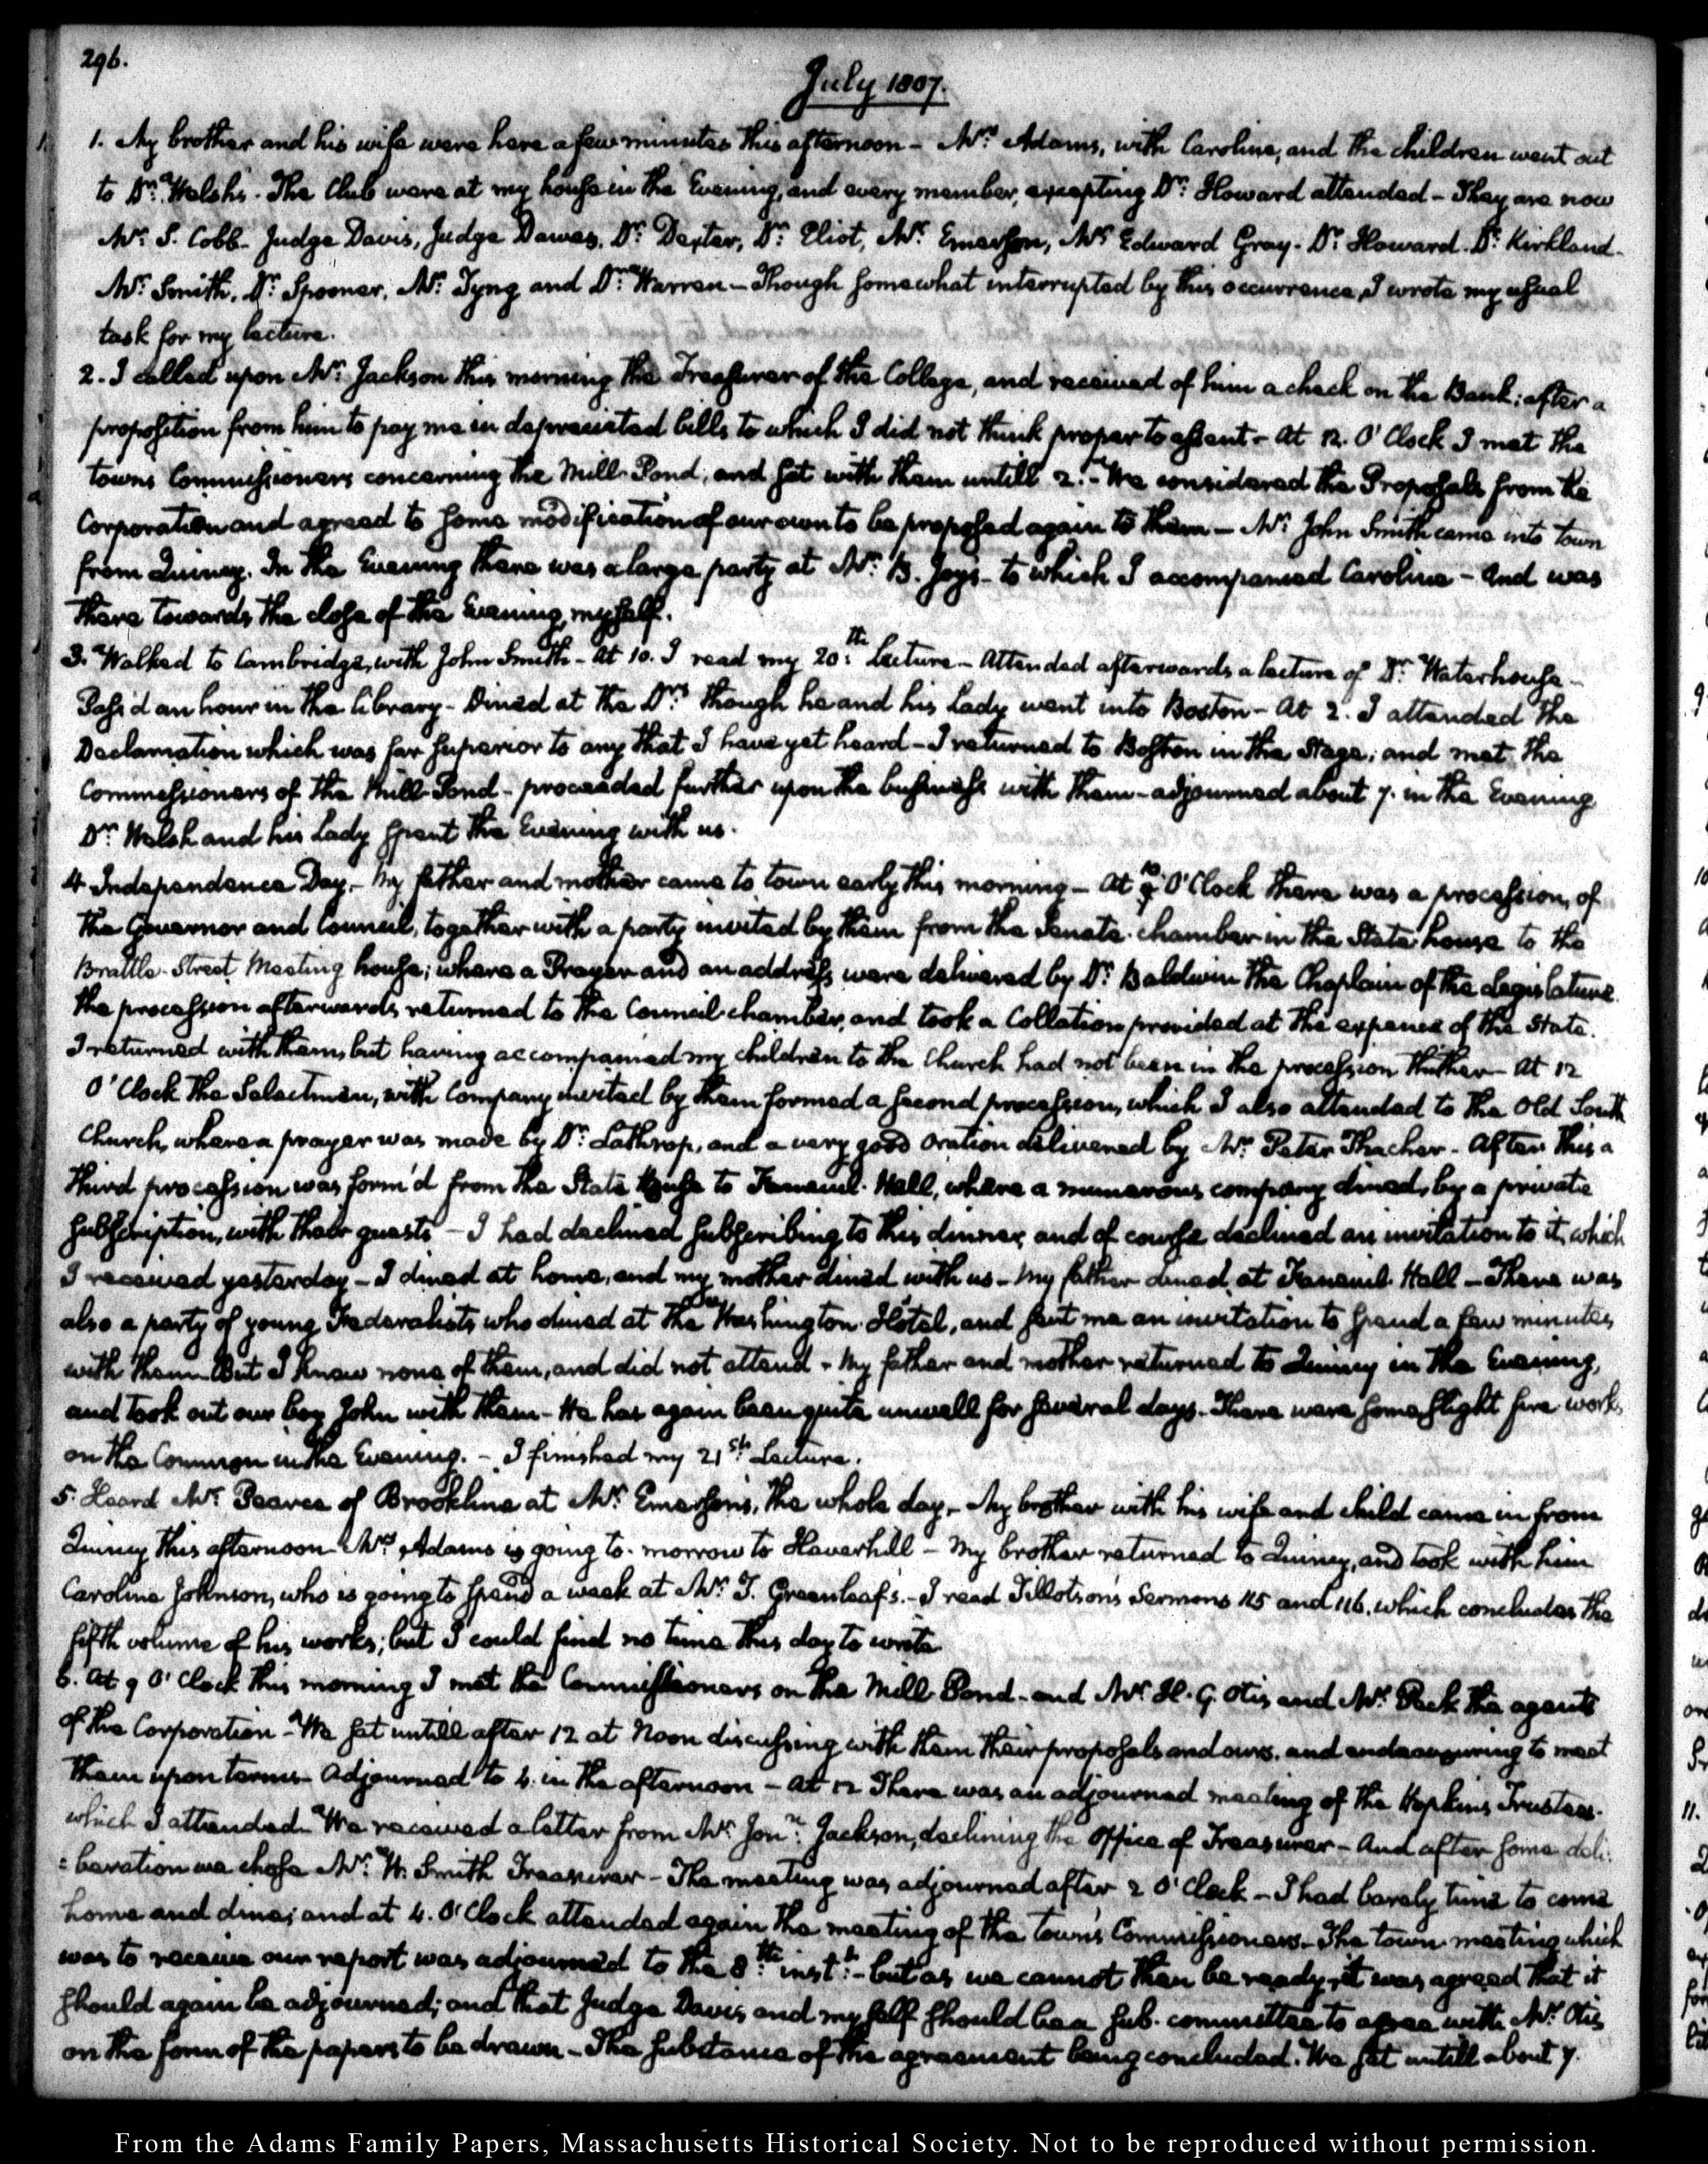 296.
July 1807.
1. My brother and his wife were here a few minutes this afternoon – Mrs. Adams, with Caroline, and the children went out
to Dr. Welsh's. The Club were at my house in the Evening, and every member, excepting Dr. Howard attended – They are now
Mr. S. Cobb. Judge Davis, Judge Dawes, Dr. Dexter, Dr. Eliot, Mr. Emerson, Mr. Edward Gray. Dr. Howard. Dr. Kirkland.
Mr. Smith, Dr. Spooner, Mr. Tyng and Dr. Warren – Though somewhat interrupted by this occurrence, I wrote my usual
task for my lecture.
2. I called upon Mr. Jackson this morning the Treasurer of the College, and received of him a check on the Bank; after a
proposition from him to pay me in depreciated bills to which I did not think proper to assent – At 12. O'Clock I met the
towns Commissioners concerning the Mill-Pond, and sat with them untill 2. – We considered the Proposals from the
Corporation and agreed to some modification of our own to be proposed again to them – Mr. John Smith came into town
from Quincy. In the Evening there was a large party at Mr. B. Joys – to which I accompanied Caroline – And was
there towards the close of the Evening, myself.
3. Walked to Cambridge, with John Smith – At 10. I read my 20th. Lecture – Attended afterwards a lecture of Dr. Waterhouse –
Pass'd an hour in the library – Dined at the Drs. though he and his Lady went into Boston – At 2. I attended the
Declamation which was far superior to any that I have yet heard – I returned to Boston in the Stage; and met the
Commissioners of the Mill-Pond – proceeded further upon the business with them – adjourned about 7. in the Evening
Dr. Welsh and his Lady spent the Evening with us.
4 Independence Day – My father and mother came to town early this morning – At 10 O'Clock there was a procession, of
the Governor and Council, together with a party invited by them from the Senate-chamber in the State house to the
Brattle-Street Meeting house; where a Prayer and an address were delivered by Dr. Baldwin the Chaplain of the Legislature.
the procession afterwards returned to the Council-chamber, and took a Collation provided at the expence of the State.
I returned with them, but having accompanied my children to the Church had not been in the procession thither – At 12
O'Clock the Selectmen, with Company invited by them formed a second procession, which I also attended to the Old South
Church, where a prayer was made by Dr. Lathrop, and a very good oration delivered by Mr. Peter Thacher – After this a
third procession was form'd from the State House to Faneuil-Hall, where a numerous company dined, by a private
subscription, with their guests – I had declined subscribing to this dinner, and of course declined an invitation to it, which
I received yesterday – I dined at home, and my mother dined with us – My father dined at Faneuil-Hall – There was
also a party of young Federalists who dined at the Washington-Hôtel, and sent me an invitation to spend a few minutes
with them – But I knew none of them, and did not attend – My father and mother returned to Quincy in the Evening,
and took out our boy John with them – He has again been quite unwell for several days. There were some slight fire works
on the Common in the Evening. – I finished my 21st. Lecture.
5. Heard Mr. Pearce of Brookline at Mr. Emerson's, the whole day. – My brother with his wife and child came in from
Quincy this afternoon. Mrs. Adams is going to-morrow to Haverhill – My brother returned to Quincy, and took with him
Caroline Johnson, who is going to spend a week at Mr. T. Greenleaf's. – I read Tillotson's Sermons 115 and 116. which concludes the
fifth volume of his works; but I could find no time this day to write.
6. At 9 O'Clock this morning I met the Commissioners on the Mill-Pond – and Mr. H. G. Otis and Mr. Peck the agents
of the Corporation – We sat untill after 12 at Noon discussing with them their proposals and ours. and endeavouring to meet
them upon terms – Adjourned to 4. in the afternoon – At 12 There was an adjourned meeting of the Hopkins Trustees –
which I attended – We received a letter from Mr. Jonn. Jackson, declining the Office of Treasurer – And after some deli:
:beration we chose Mr. W. Smith Treasurer – The meeting was adjourned after 2 O'Clock – I had barely time to come
home and dine; and at 4. O'Clock attended again the meeting of the town's Commissioners – The town-meeting which
was to receive our report was adjourned to the 8th. inst. – but as we cannot then be ready, it was agreed that it
should again be adjourned; and that Judge Davis and myself should be a sub-committee to agree with Mr. Otis
on the form of the papers to be drawn – The substance of the agreement being concluded. We sat untill about 7.
From the Adams Family Papers, Massachusetts Historical Society. Not to be reproduced without permission.